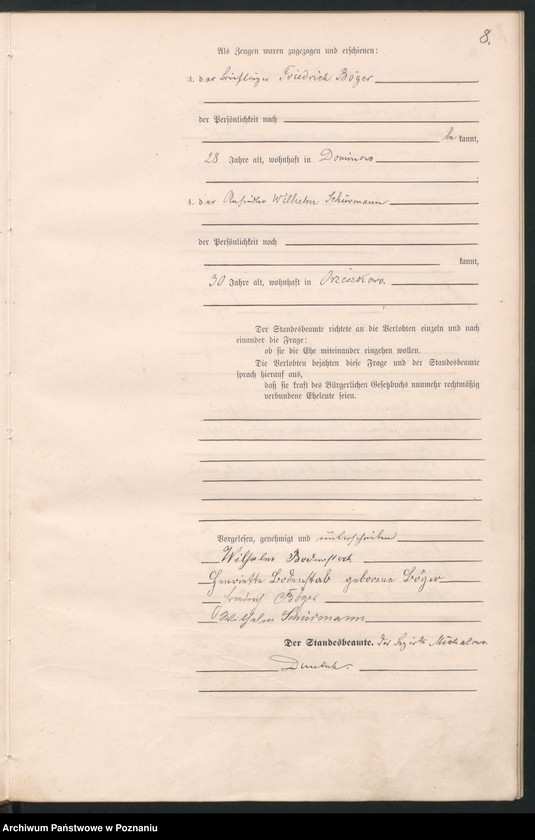 8.
Als Zeugen waren zugezogen und erschienen:
3. der Friedrich Böger
der Persönlichkeit nach
bekannt,
28 Jahre alt, wohnhaft in Dominowo
4. der Ansiedler Wilhelm Schürmann
der Persönlichkeit nach
kannt,
30 Jahre alt, wohnhaft in Orzeszkowo.
Der Standesbeamte richtete an die Verlobten einzeln und nach
einander die Frage:
ob sie die Ehe miteinander eingehen wollen.
Die Verlobten bejahten diese Frage und der Standesbeamte
sprach hierauf aus,
daß sie kraft des Bürgerlichen Gesetzbuchs nunmehr rechtmäßig
verbundene Eheleute seien.
Vorgelesen, genehmigt und unterschrieben
Wilhelm Bodenstab
Henriette Bodenstab geborene Böger
Friedrich Böger
Wilhelm Schürmann
Der Standesbeamte. des Bezirks Michalowo.
Archiwum Państwowe w Poznaniu